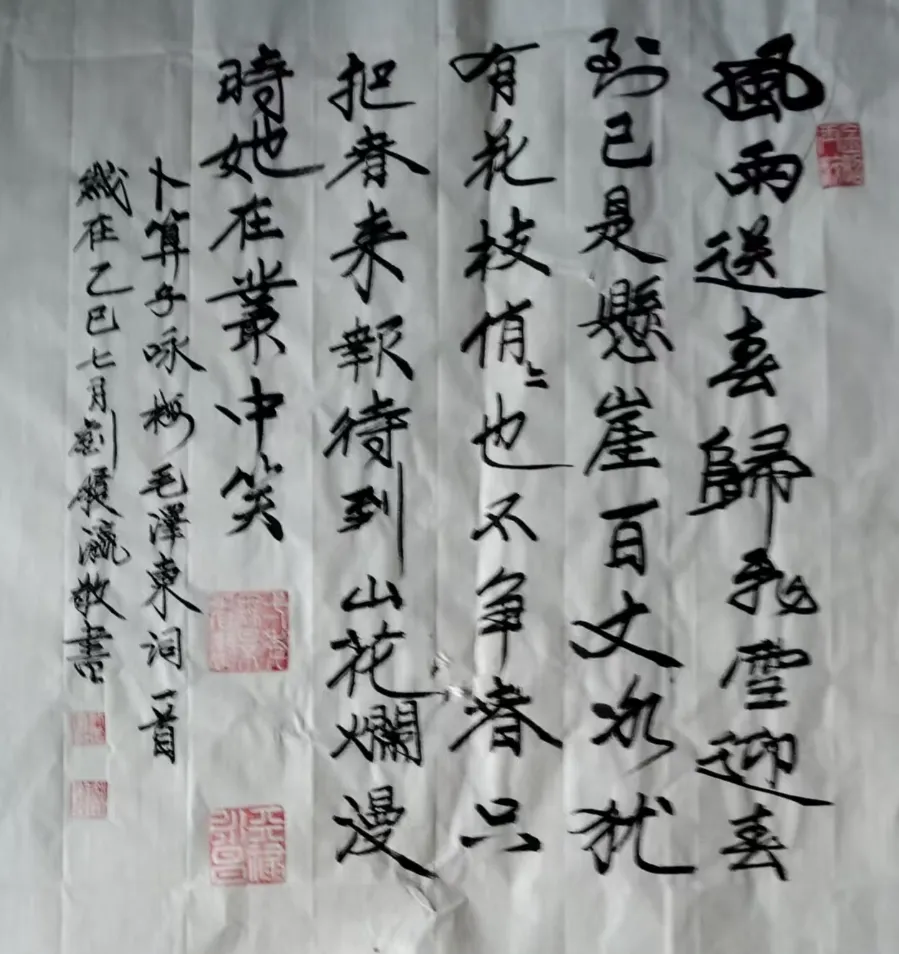 風雨送春歸飛雪迎春
到已是懸崖百丈冰猶
有花枝俏俏也不争春只
把春来報待到山花爛漫
時她在叢中笑
卜算子咏梅毛澤東詞一首
歲在乙巳七月劉 瀛敬書